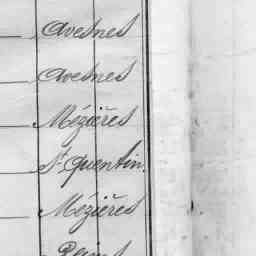 Avesnes
Avesnes
Mézières
St. Quentin.
Mézières